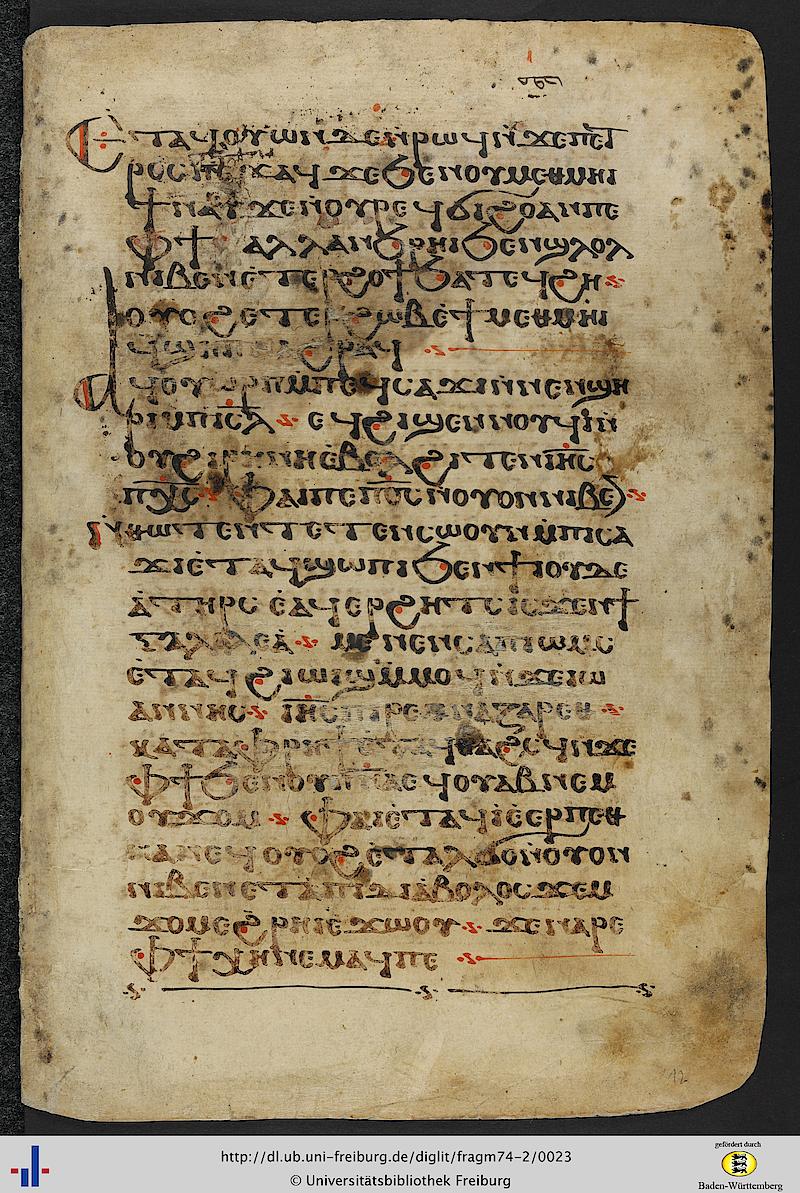 Ⲉⲧⲁϥⲟⲩⲱⲛ ⲇⲉ ⲛⲣⲱϥ ⲛϫⲉⲡⲉⲧ
ⲣⲟⲥ ⲡⲉϫⲁϥ ϫⲉ ϧⲉⲛ ⲟⲩⲙⲉⲑⲙⲏⲓ
ϯⲛⲁⲩ ϫⲉ ⲛⲟⲩⲣⲉϥϭⲓϩⲟ ⲁⲛ ⲡⲉ
ⲫϯ ⲁⲗⲗⲁ ⲛϧⲣⲏⲓ ϧⲉⲛ ϣⲗⲟⲗ
ⲛⲓⲃⲉⲛ ⲉⲧⲉⲣϩⲟϯ ϧⲁⲧⲉϥϩⲏ
ⲟⲩⲟϩ ⲉⲧⲉⲣϩⲱⲃ ⲉϯⲙⲉⲑⲙⲏⲓ
ϥϣⲏⲡ ⲛⲁϩⲣⲁϥ
Ⲁϥⲟⲩⲱⲣⲡ ⲙⲡⲉϥⲥⲁϫⲓ ⲛⲛⲉⲛϣⲏ
ⲣⲓ ⲙⲡⲓⲥⲗ ⲉϥϩⲓϣⲉⲛⲛⲟⲩϥⲓ ⲛ
ⲟⲩϩⲓⲣⲏⲛⲏ ⲉⲃⲟⲗ ϩⲓⲧⲉⲛ ⲓⲏⲥ
ⲡⲭⲥ ⲫⲁⲓ ⲡⲉ ⲡϭⲥ ⲛⲟⲩⲟⲛ ⲛⲓⲃⲉⲛ
ⲛⲑⲱⲧⲉⲛ ⲧⲉⲧⲉⲛⲥⲱⲟⲩⲛ ⲙⲡⲓⲥⲁ
ϫⲓ ⲉⲧⲁϥϣⲱⲡⲓ ϧⲉⲛ ϯⲓⲟⲩⲇⲉ
ⲁ ⲧⲏⲣⲥ ⲉⲁϥⲉⲣϩⲏⲧⲥ ⲓⲥϫⲉⲛ ϯ
ⲅⲁⲗⲗⲉⲁ ⲙⲉⲛⲉⲛⲥⲁ ⲡⲓⲱⲙⲥ
ⲉⲧⲁϥϩⲓⲱⲓϣ ⲙⲙⲟϥ ⲛϫⲉⲓⲱ
ⲁⲛⲛⲏⲥ ⲓⲏⲥ ⲡⲓⲣⲉⲙⲛⲁⲍⲁⲣⲉⲑ
ⲕⲁⲧⲁ ⲫⲣⲏϯ ⲉⲧⲁϥⲑⲁϩⲥϥ ⲛϫⲉ
ⲫϯ ϧⲉⲛ ⲟⲩⲡⲛⲁ ⲉϥⲟⲩⲁⲃ ⲛⲉⲙ
ⲟⲩϫⲟⲙ ⲫⲁⲓ ⲉⲧⲁϥⲓ ⲉⲉⲣⲡⲉⲑ
ⲛⲁⲛⲉϥ ⲟⲩⲟϩ ⲉⲧⲁⲗϭⲟ ⲛⲟⲩⲟⲛ
ⲛⲓⲃⲉⲛ ⲉⲧⲁ ⲡⲓⲇⲓⲁⲃⲟⲗⲟⲥ ϫⲉⲙ
ϫⲟⲙ ⲉϩⲣⲏⲓ ⲉϫⲱⲟⲩ ϫⲉ ⲛⲁⲣⲉ
ⲫϯ ⲭⲏ ⲛⲉⲙⲁϥ ⲡⲉ
12
http://dl.ub.uni-freiburg.de/diglit/fragm74-2/0023
© Universitätsbibliothek Freiburg
gefördert durch
Baden-Württemberg